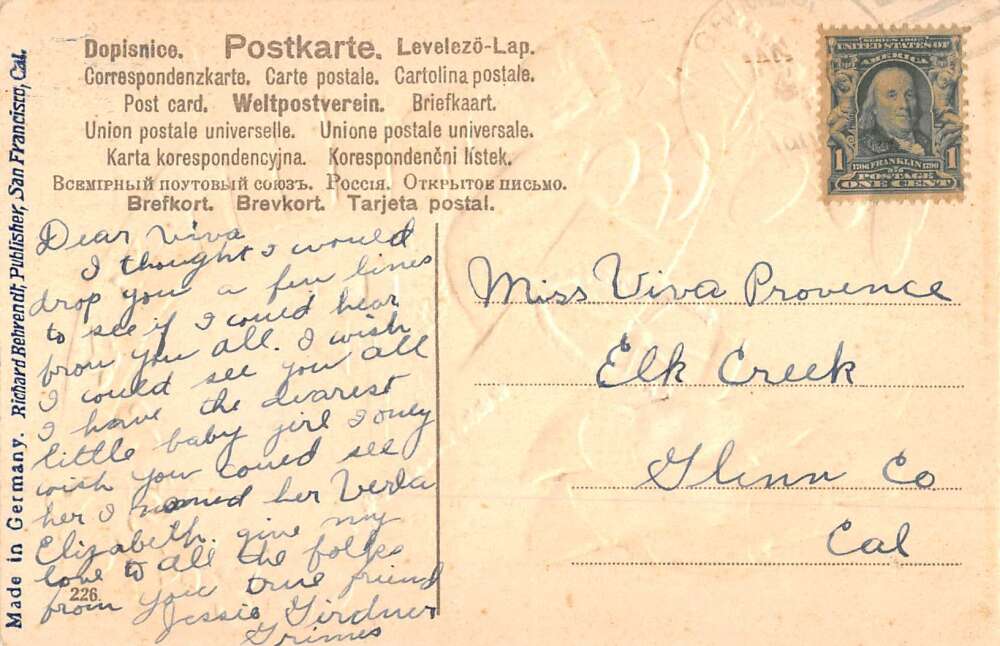 Dopisnice. Postkarte. Levelező-Lap.
Correspondenzkarte. Carte postale. Cartolina postale.
Post card. Weltpostverein. Briefkaart.
Union postale universelle. Unione postale universale.
Karta korespondencyjna. Korespondenčni lístek.
Всемірный поутовый союзъ. Россія. Открытое письмо.
Brefkort. Brevkort. Tarjeta postal.
SERIES 1902
UNITED STATES OF
AMERICA
1 1706 FRANKLIN 1790 1
POSTAGE
ONE CENT
Dear Viva
I thought I would
drop you a few lines
to see if I could hear
from you all. I wish
I could see you all
I have the dearest
little baby girl I only
wish you could see
her I named her Verla
Elizabeth. give my
love to all the folks
from your true friend
Jessie Girdner
Grimes
Miss Viva Provence
Elk Creek
Glenn Co
Cal
226
Made in Germany. Richard Behrendt, Publisher, San Francisco, Cal.